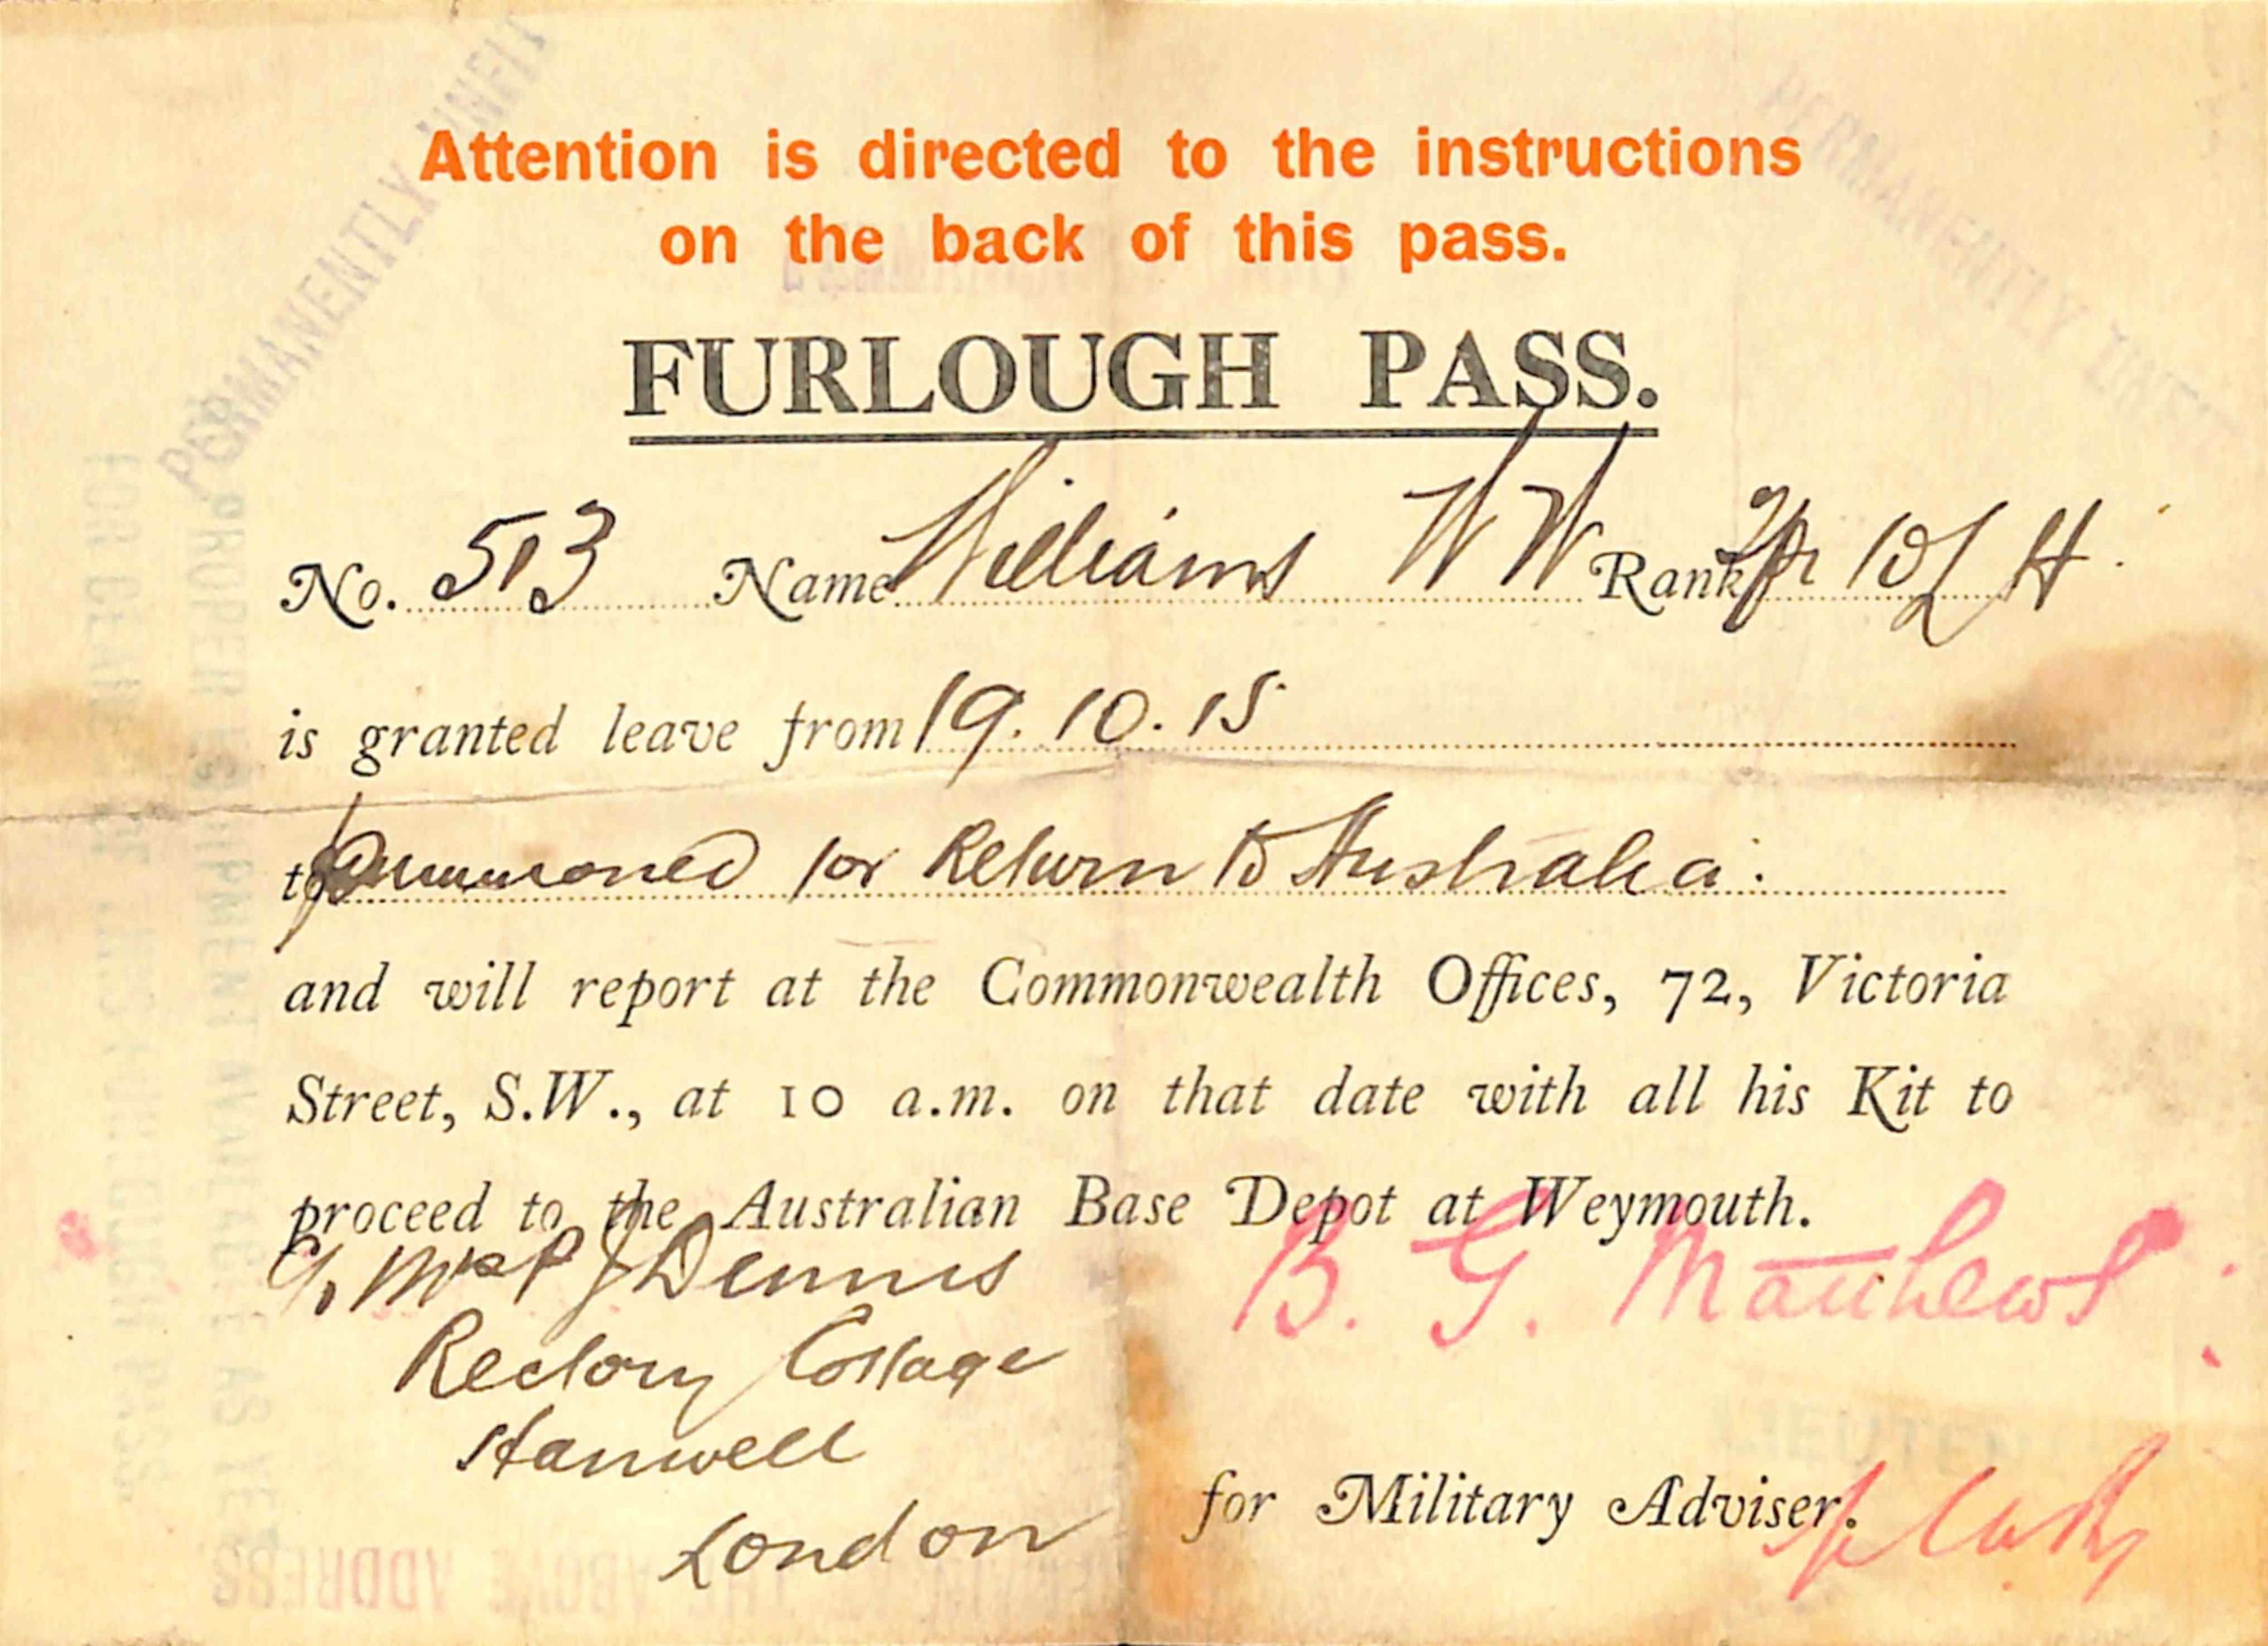 PERMANENTLY UNFIT
PERMANENTLY UNFIT
Attention is directed to the instructions
on the back of this pass.
FURLOUGH PASS.
No. 513 Name Williams W W Rank Tpr 10 L H.
is granted leave from 19.10.15
to Summoned for Return to Australia.
and will report at the Commonwealth Offices, 72, Victoria
Street, S.W., at 10 a.m. on that date with all his Kit to
proceed to the Australian Base Depot at Weymouth.
Dennis
B. G. Matthews
Rectory Cottage
Hanwell
London
for Military Adviser.
PROPER EQUIPMENT AVAILABLE AS YET
ABOVE ADDRESS